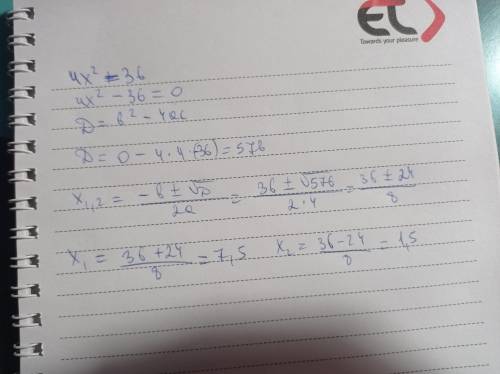 ETC
Towards your pleasure
4x² = 36
4x² - 36 = 0
D = b² - 4ac
D = 0 - 4 * 4 (-36) = 576
x₁,₂ = (-b ± √D) / 2a = (36 ± √576) / (2 * 4) = (36 ± 24) / 8
x₁ = (36 + 24) / 8 = 7,5    x₂ = (36 - 24) / 8 = 1,5